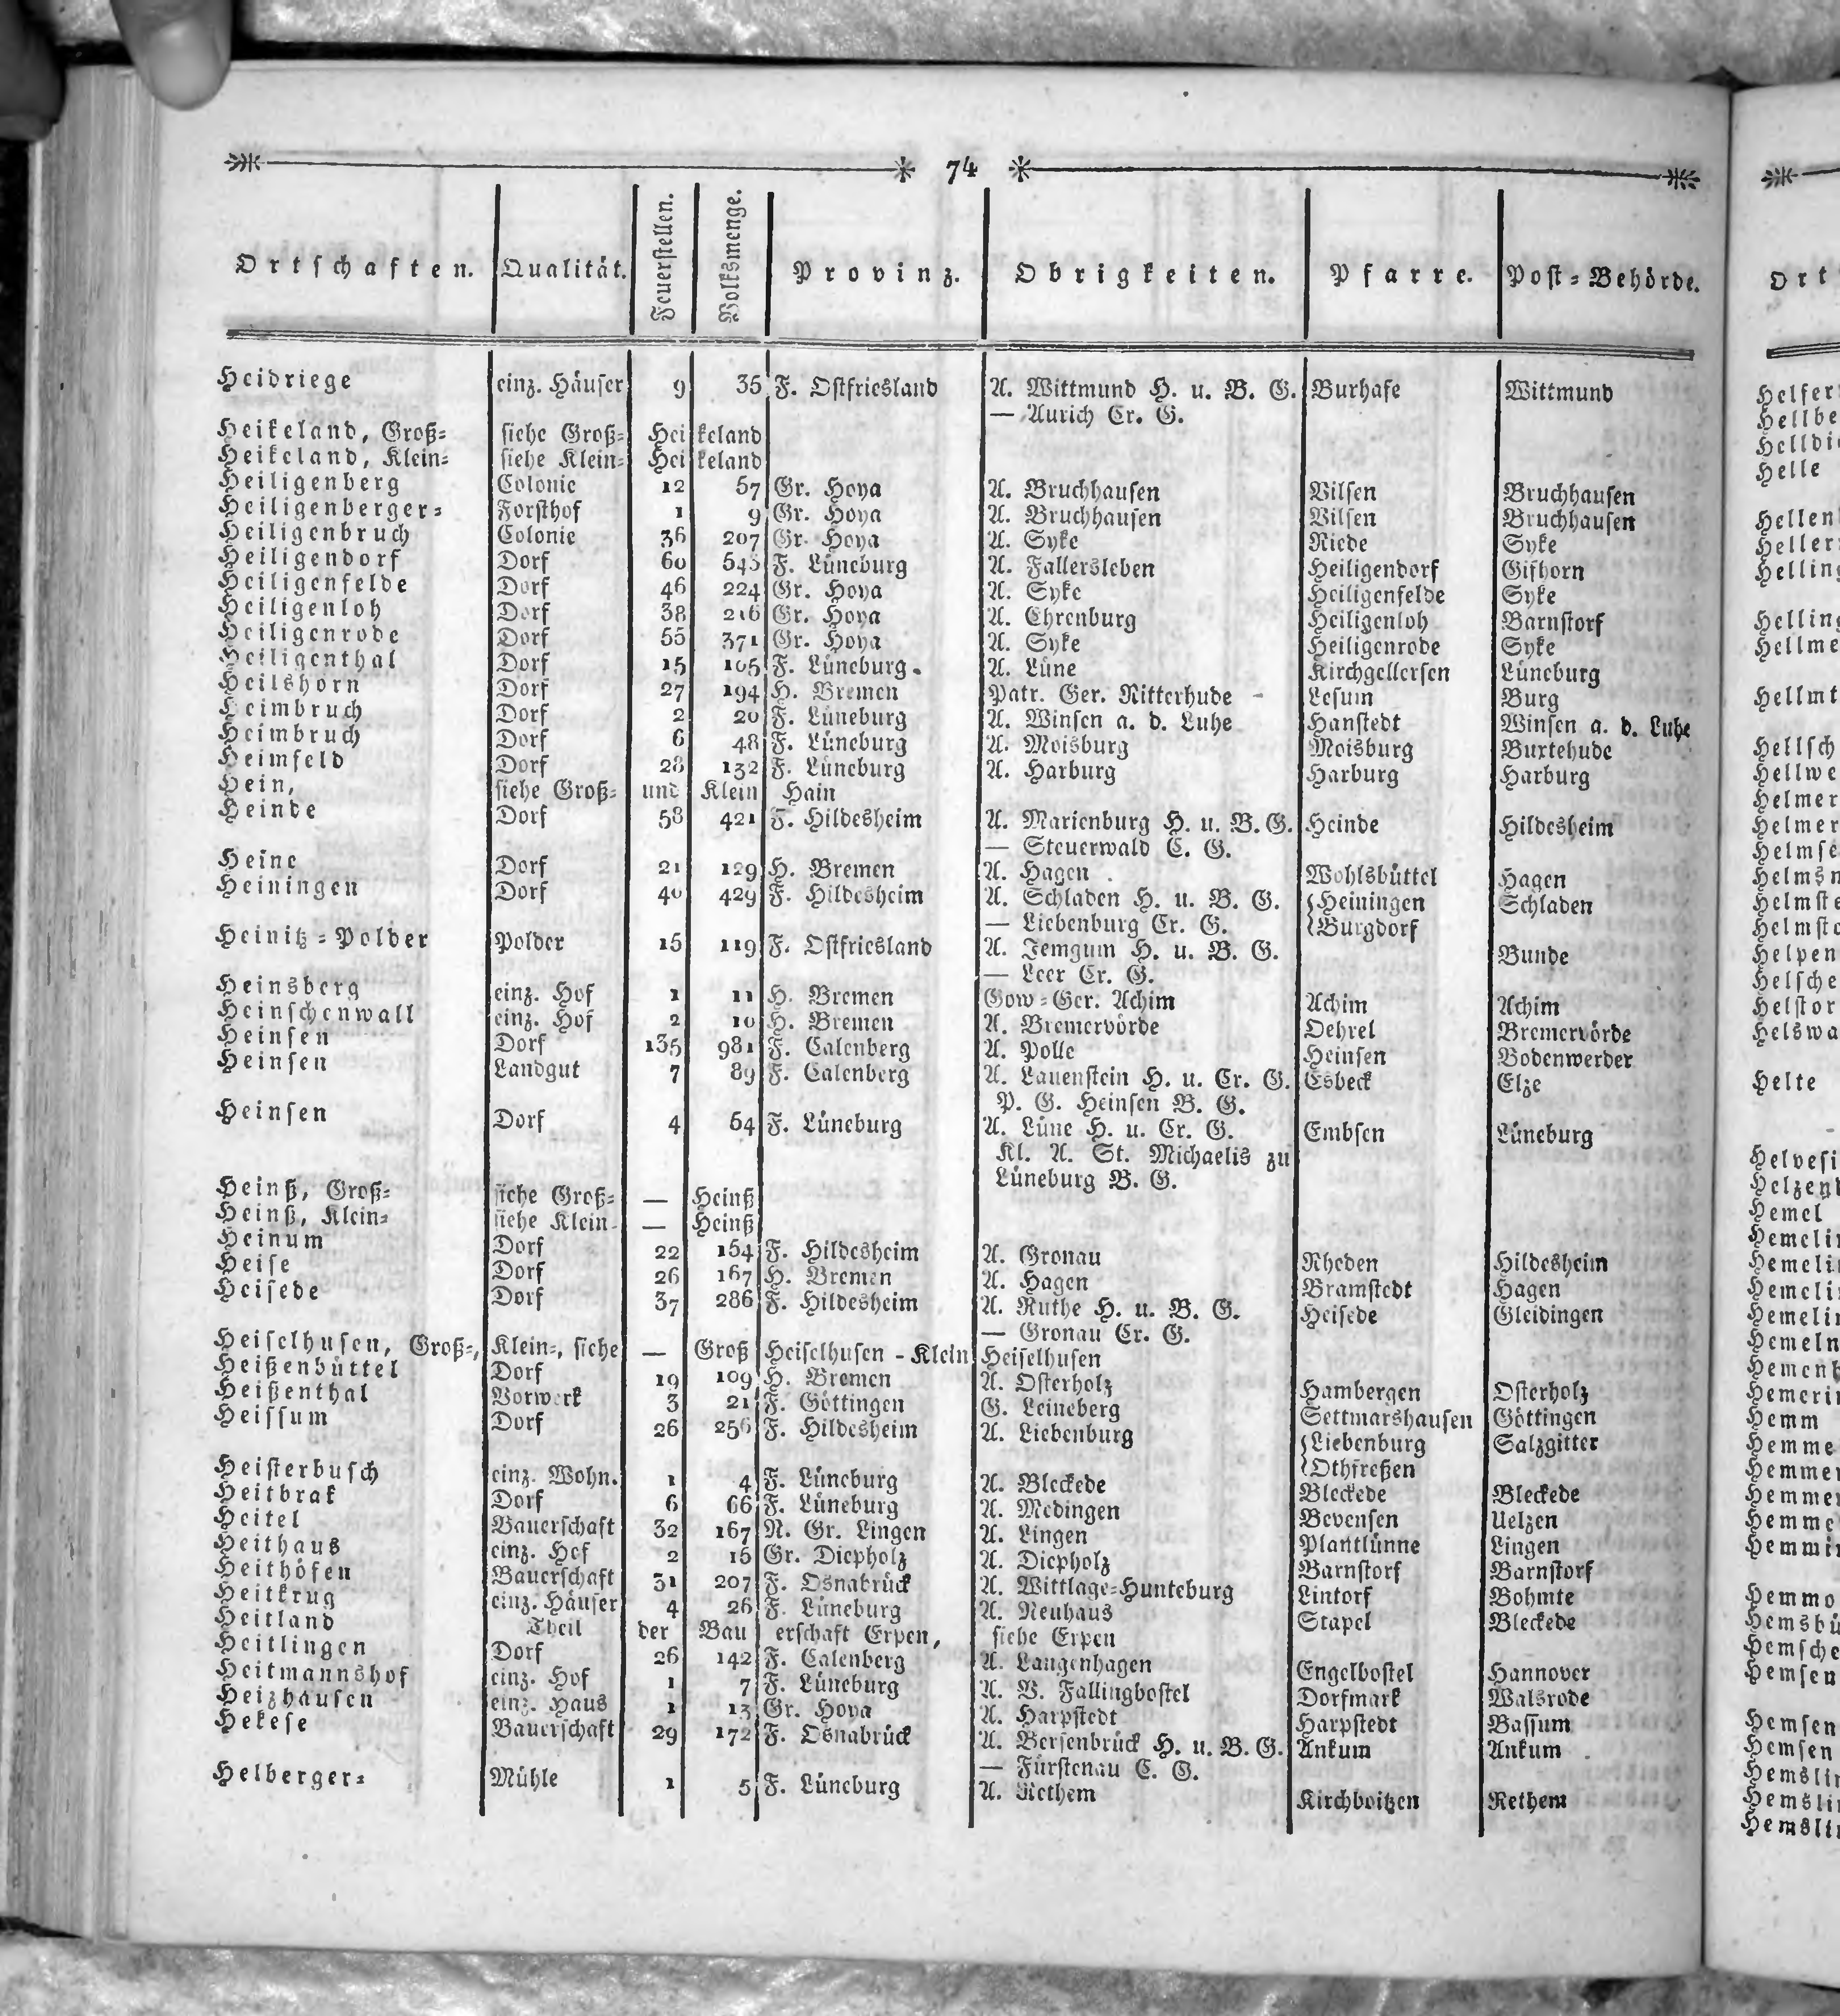 74
Ortschaften. Qualität. Feuerstellen. Volksmenge. Provinz. Obrigkeiten. Pfarre. Post-Behörde.
Heidriege einz. Häuser 9 35 F. Ostfriesland A. Wittmund H. u. B. G. Burhafe Wittmund
— Aurich Cr. G.
Heikeland, Groß- siehe Groß- Heikeland
Heikeland, Klein- siehe Klein- Heikeland
Heiligenberg Colonie 12 57 Gr. Hoya A. Bruchhausen Vilsen Bruchhausen
Heiligenberger- Forsthof 1 9 Gr. Hoya A. Bruchhausen Vilsen Bruchhausen
Heiligenbruch Colonie 36 207 Gr. Hoya A. Syke Riede Syke
Heiligendorf Dorf 60 545 F. Lüneburg A. Fallersleben Heiligendorf Gifhorn
Heiligenfelde Dorf 46 224 Gr. Hoya A. Syke Heiligenfelde Syke
Heiligenloh Dorf 38 216 Gr. Hoya A. Ehrenburg Heiligenloh Barnstorf
Heiligenrode Dorf 55 371 Gr. Hoya A. Syke Heiligenrode Syke
Heiligenthal Dorf 15 105 F. Lüneburg. A. Lüne Kirchgellersen Lüneburg
Heilshorn Dorf 27 194 H. Bremen Patr. Ger. Ritterhude Lesum Burg
Heimbruch Dorf 2 20 F. Lüneburg A. Winsen a. d. Luhe Hanstedt Winsen a. d. Luhe
Heimbruch Dorf 6 48 F. Lüneburg A. Moisburg Moisburg Buxtehude
Heimfeld Dorf 28 132 F. Lüneburg A. Harburg Harburg Harburg
Hein, siehe Groß- und Klein Hain
Heinde Dorf 58 421 F. Hildesheim A. Marienburg H. u. B. G. Heinde Hildesheim
— Steuerwald C. G.
Heine Dorf 21 129 H. Bremen A. Hagen Wohlsbüttel Hagen
Heiningen Dorf 40 429 F. Hildesheim A. Schladen H. u. B. G. {Heiningen Schladen
— Liebenburg Cr. G. {Burgdorf
Heinitz-Polder Polder 15 119 F. Ostfriesland A. Jemgum H. u. B. G. Bunde
— Leer Cr. G.
Heinsberg einz. Hof 1 11 H. Bremen Gow-Ger. Achim Achim Achim
Heinschenwall einz. Hof 2 10 H. Bremen A. Bremervörde Oehrel Bremervörde
Heinsen Dorf 135 981 F. Calenberg A. Polle Heinsen Bodenwerder
Heinsen Landgut 7 89 F. Calenberg A. Lauenstein H. u. Cr. G. Esbeck Elze
P. G. Heinsen B. G.
Heinsen Dorf 4 54 F. Lüneburg A. Lüne H. u. Cr. G. Embsen Lüneburg
Kl. A. St. Michaelis zu
Lüneburg B. G.
Heinß, Groß- siehe Groß- — Heinß
Heinß, Klein- siehe Klein- — Heinß
Heinum Dorf 22 154 F. Hildesheim A. Gronau Rheden Hildesheim
Heise Dorf 26 167 H. Bremen A. Hagen Bramstedt Hagen
Heisede Dorf 37 286 F. Hildesheim A. Ruthe H. u. B. G. Heisede Gleidingen
— Gronau Cr. G.
Heiselhusen, Groß-, Klein-, siehe — Groß Heiselhusen - Klein Heiselhusen
Heißenbüttel Dorf 19 109 H. Bremen A. Osterholz Hambergen Osterholz
Heißenthal Vorwerk 3 21 F. Göttingen G. Leineberg Settmarshausen Göttingen
Heissum Dorf 26 256 F. Hildesheim A. Liebenburg {Liebenburg Salzgitter
{Othfreßen
Heisterbusch einz. Wohn. 1 4 F. Lüneburg A. Bleckede Bleckede Bleckede
Heitbrak Dorf 6 66 F. Lüneburg A. Medingen Bevensen Uelzen
Heitel Bauerschaft 32 167 N. Gr. Lingen A. Lingen Plantlünne Lingen
Heithaus einz. Hof 2 15 Gr. Diepholz A. Diepholz Barnstorf Barnstorf
Heithöfen Bauerschaft 31 207 F. Osnabrück A. Wittlage-Hunteburg Lintorf Bohmte
Heitkrug einz. Häuser 4 26 F. Lüneburg A. Neuhaus Stapel Bleckede
Heitland Theil der Bauerschaft Erpen, siehe Erpen
Heitlingen Dorf 26 142 F. Calenberg A. Langenhagen Engelbostel Hannover
Heitmannshof einz. Hof 1 7 F. Lüneburg A. V. Fallingbostel Dorfmark Walsrode
Heizhausen einz. Haus 1 13 Gr. Hoya A. Harpstedt Harpstedt Bassum
Hekese Bauerschaft 29 172 F. Osnabrück A. Bersenbrück H. u. B. G. Ankum Ankum
— Fürstenau C. G.
Helberger- Mühle 1 5 F. Lüneburg A. Rethem Kirchboitzen Rethem
Ort
Helfer
Hellbe
Helldi
Helle
Hellen
Heller
Helling
Helling
Hellme
Hellmt
Hellsch
Hellwe
Helmer
Helmer
Helmse
Helmsn
Helmste
Helmsto
Helpen
Helsche
Helstor
Helswa
Helte
Helvesi
Helzend
Hemel
Hemelin
Hemelin
Hemelin
Hemelin
Hemeln
Hemenh
Hemerin
Hemm
Hemme
Hemmer
Hemmer
Hemme
Hemmin
Hemmo
Hemsbü
Hemsche
Hemsen
Hemsen
Hemsen
Hemslin
Hemslin
Hemslin